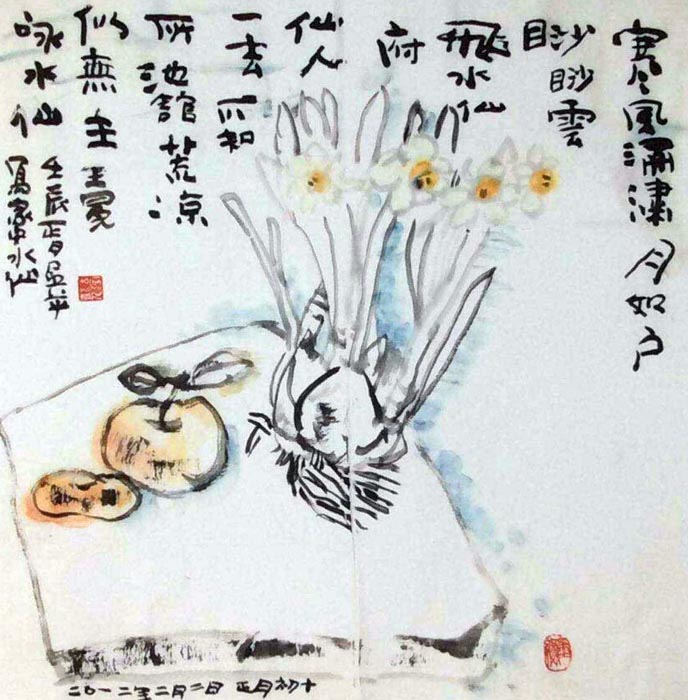 寒風瀟瀟月如户
渺渺雲
飛水仙
府
仙人
一去不知
所池館荒凉
似無主 王冕
咏水仙
壬辰正月
寫家中水仙
二〇一二年二月二日 正月初十